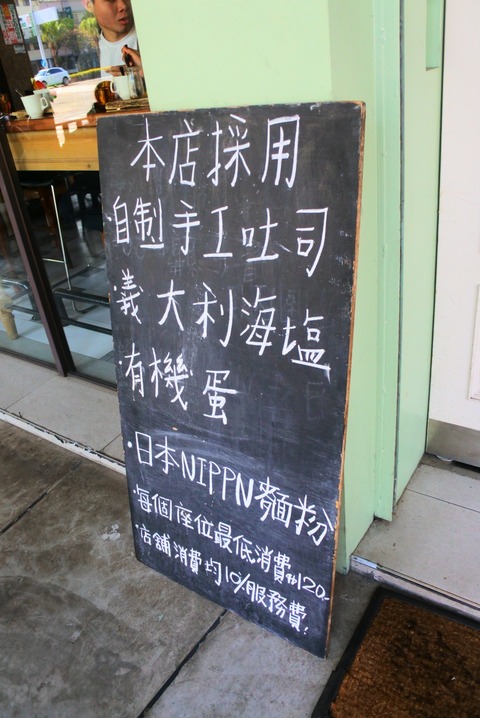 本店採用
·自製手工吐司
·義大利海塩
·有機蛋
·日本NIPPN麵粉
·每個座位最低消費$120.-
·店舖消費均10%服務費!